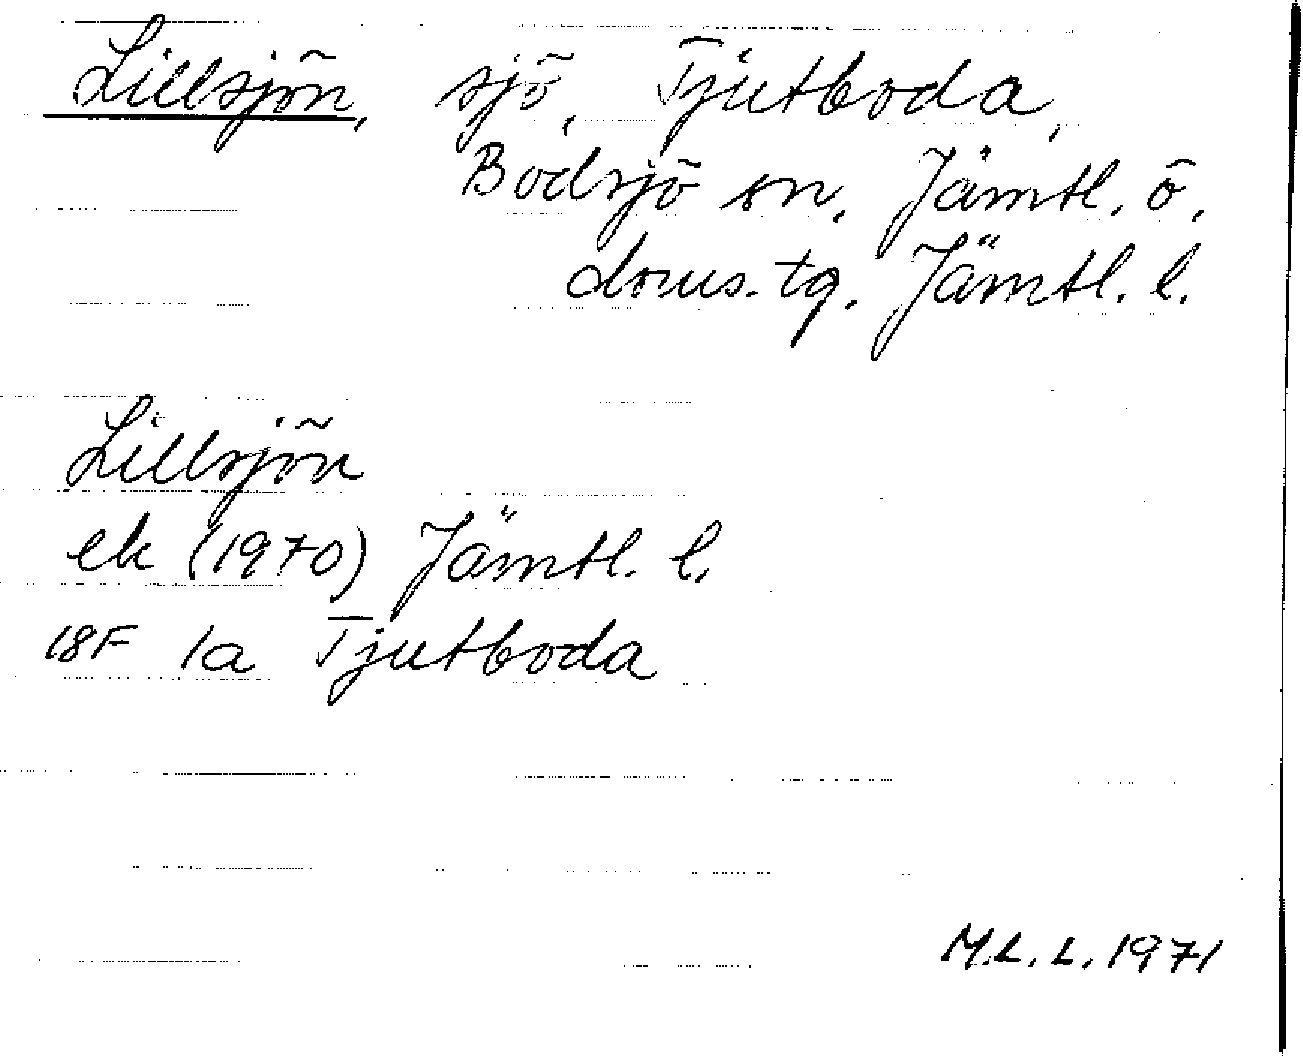 Lillsjön, sjö, Tjutboda,
Bodsjö sn, Jämtl. ö.
doms. tg. Jämtl. l.
Lillsjön
ek (1970) Jämtl. l.
18F 1a Tjutboda
M.L.L. 1971